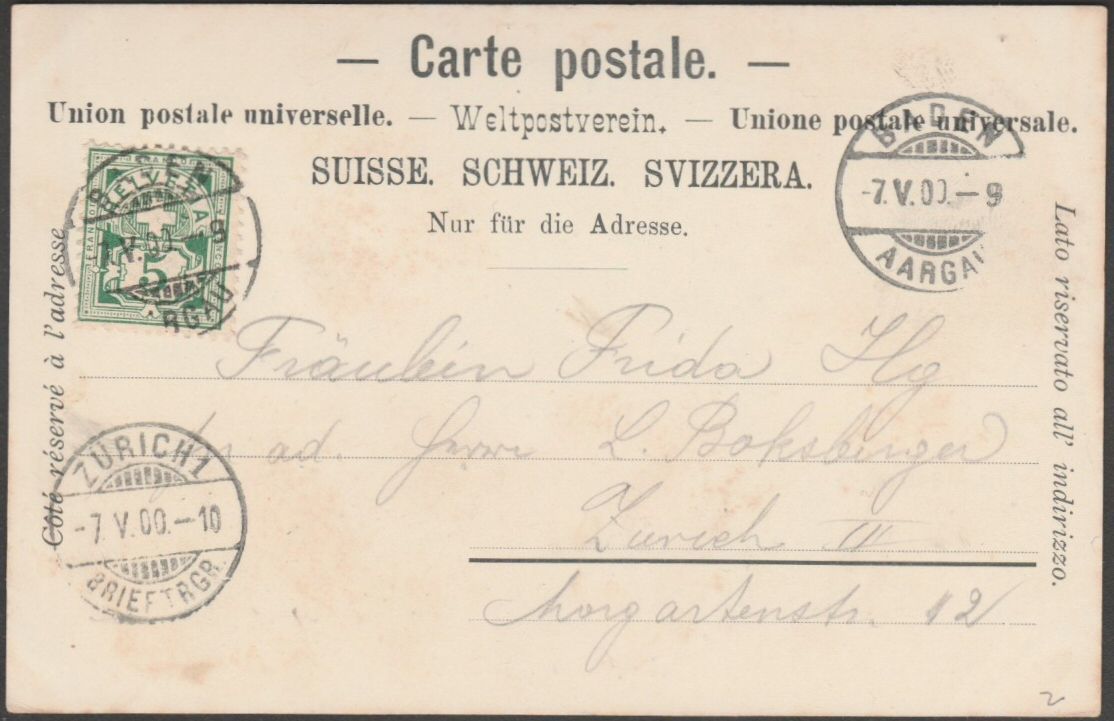 — Carte postale. —
Union postale universelle. — Weltpostverein. — Unione postale universale.
SUISSE. SCHWEIZ. SVIZZERA.
Nur für die Adresse.
Côté réservé à l'adresse
Lato riservato all' indirizzo.
HELVETIA
FRANCO
5
BADEN
-7.V.00.-9
AARGAU
Fräulein Frida Hg
ad. Herrn L. Boksberger
Zürich III
Morgartenstr. 12
ZÜRICH 1
-7.V.00.-10
BRIEFTRGR.
2